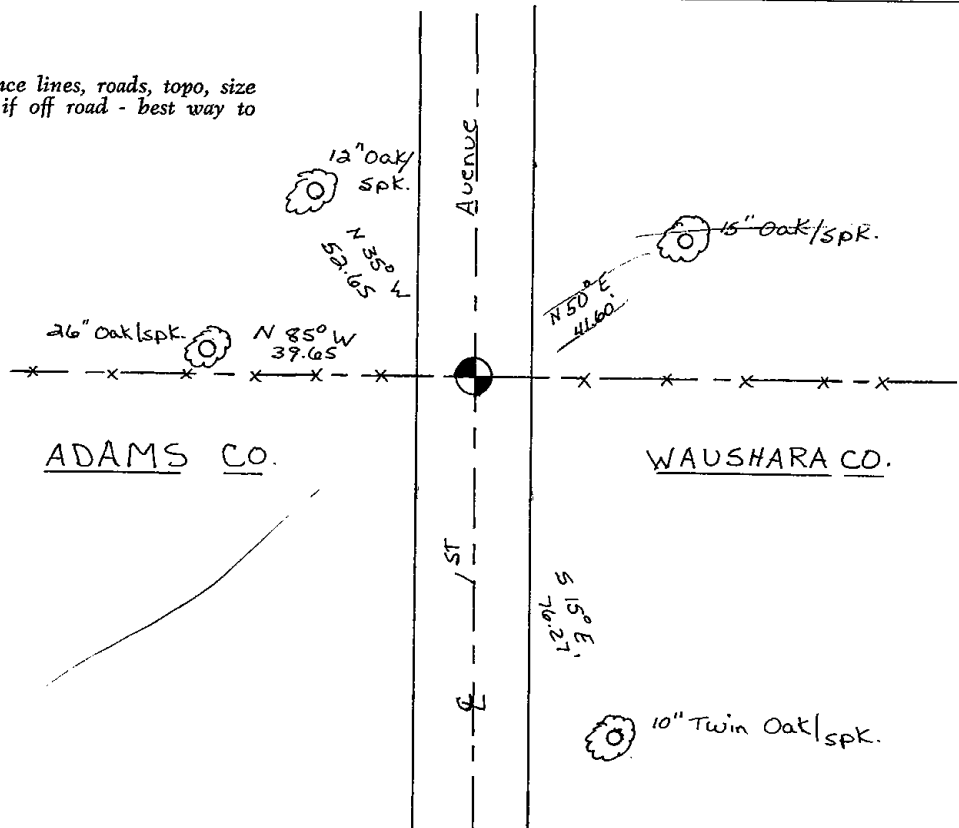 nce lines, roads, topo, size
if off road - best way to
12" Oak/
spk.
Avenue
15" Oak/spk.
N 35° W
52.65
N 50° E
41.60'
26" Oak/spk.
N 85° W
39.65
ADAMS CO.
WAUSHARA CO.
1ST
S 15° E
76.27'
℄
10" Twin Oak/spk.